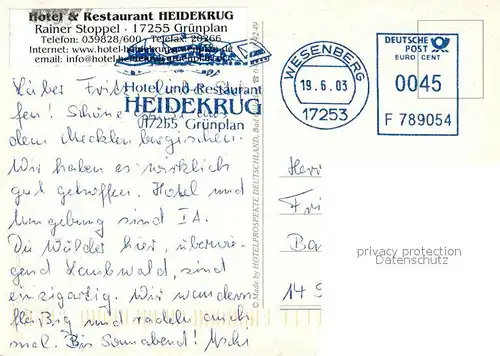 Hotel & Restaurant HEIDEKRUG
Rainer Stoppel · 17255 Grünplan
Telefon: 039828/600 · Telefax: 20266
Internet: www.hotel-heidekrug-gruenplan.de
email: info@hotel
Hotel und Restaurant
HEIDEKRUG
17255 Grünplan
WESENBERG
19.6.03
17253
DEUTSCHE
POST
EURO CENT
0045
F 789054
Lieber Fritz,
fen! Schöne
dem Mecklenburgischen.
Wir haben es wirklich
gut getroffen. Hotel und
Umgebung sind IA.
Die Wälder hier, überwie-
gend Laubwald, sind
einzigartig. Wir wandern
fleißig und radeln auch
mal. Bis Sonnabend!
© Made by HOTELPROSPEKTE DEUTSCHLAND, Bad
Herr
Fri
Ba
14 9
privacy protection
Datenschutz